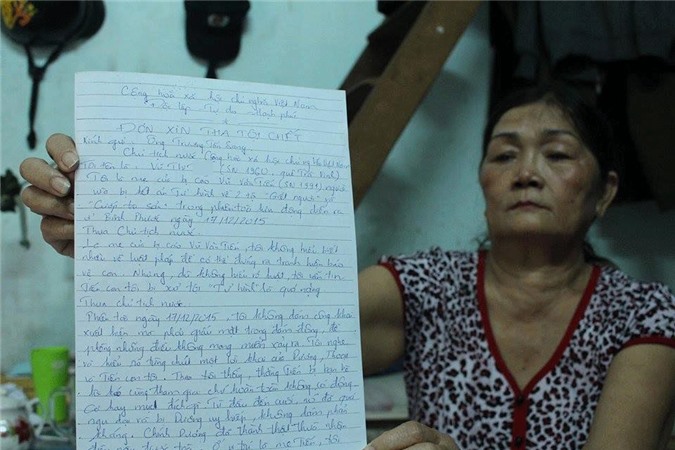 Cộng hoà xã hội chủ nghĩa Việt Nam
Độc lập Tự do Hạnh phúc
ĐƠN XIN THA TỘI CHẾT
Kính gửi: Ông Trương Tấn Sang
Chủ tịch nước Cộng hoà xã hội chủ nghĩa Việt Nam
Tôi tên là: Vũ Thị (SN 1960, quê Bắc Ninh)
Tôi là mẹ của bị cáo Vũ Văn Tiến (SN 1991) người
vừa bị kết án Tử hình về 2 tội "Giết người" và
"Cướp tài sản" trong phiên toà lưu động diễn ra
ở Bình Phước ngày 17/12/2015
Thưa Chủ tịch nước.
Là mẹ của bị cáo Vũ Văn Tiến, tôi không hiểu biết
nhiều về luật pháp để có thể đứng ra tranh luận bào
về con. Nhưng, dù không hiểu rõ luật, tôi vẫn tin
Tiến con tôi bị xử tội "Tử hình" là quá nặng
Thưa chủ tịch nước.
Phiên toà ngày 17/12/2015, tôi không dám công khai
xuất hiện mà phải giấu mặt trong đám đông, để
phòng những điều không mong muốn xảy ra. Tôi nghe
rõ từng chút một lời khai của Dương, Thoại
và Tiến con tôi. Theo tôi thấy, Tiến bị
tham gia chứ hoàn toàn không có động
cơ hay mục đích gì. Từ đầu đến cuối, nó
bị Dương uy hiếp, không dám phản
kháng. Chính Dương đã thành thật thừa nhận